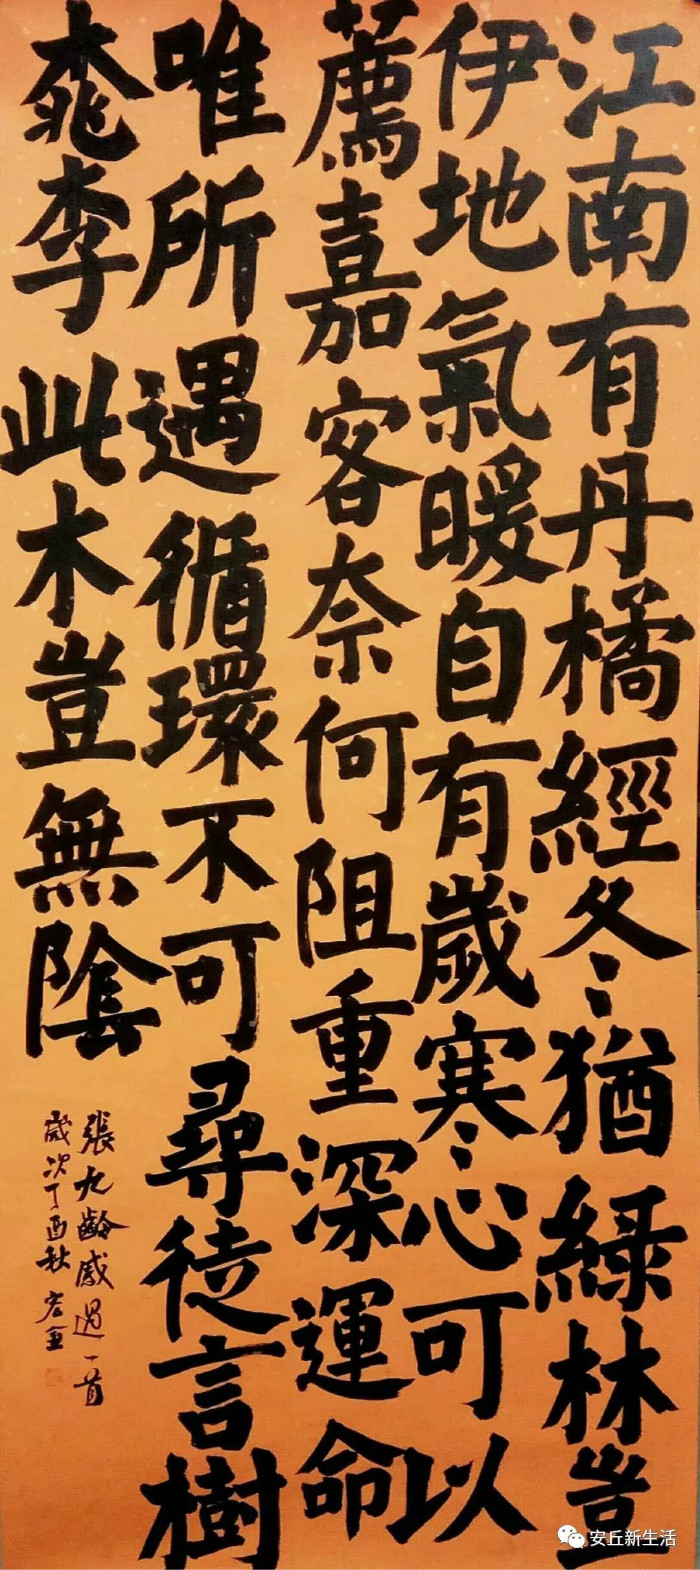 江南有丹橘經冬猶綠林豈
伊地氣暖自有歲寒心可以
薦嘉客奈何阻重深運命
唯所遇循環不可尋徒言樹
桃李此木豈無陰
張九齡感遇一首
歲次丁酉秋
安丘新生活